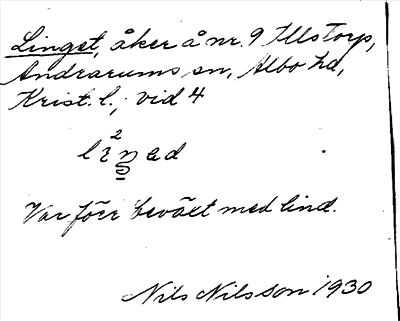 Linget, åker å nr. 9 Illstorp,
Andrarums sn, Albo hd,
Krist. l., vid 4
Var förr beväxt med lind.
Nils Nilsson 1930